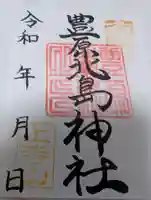 豊鹿島神社
令和 年 月 日